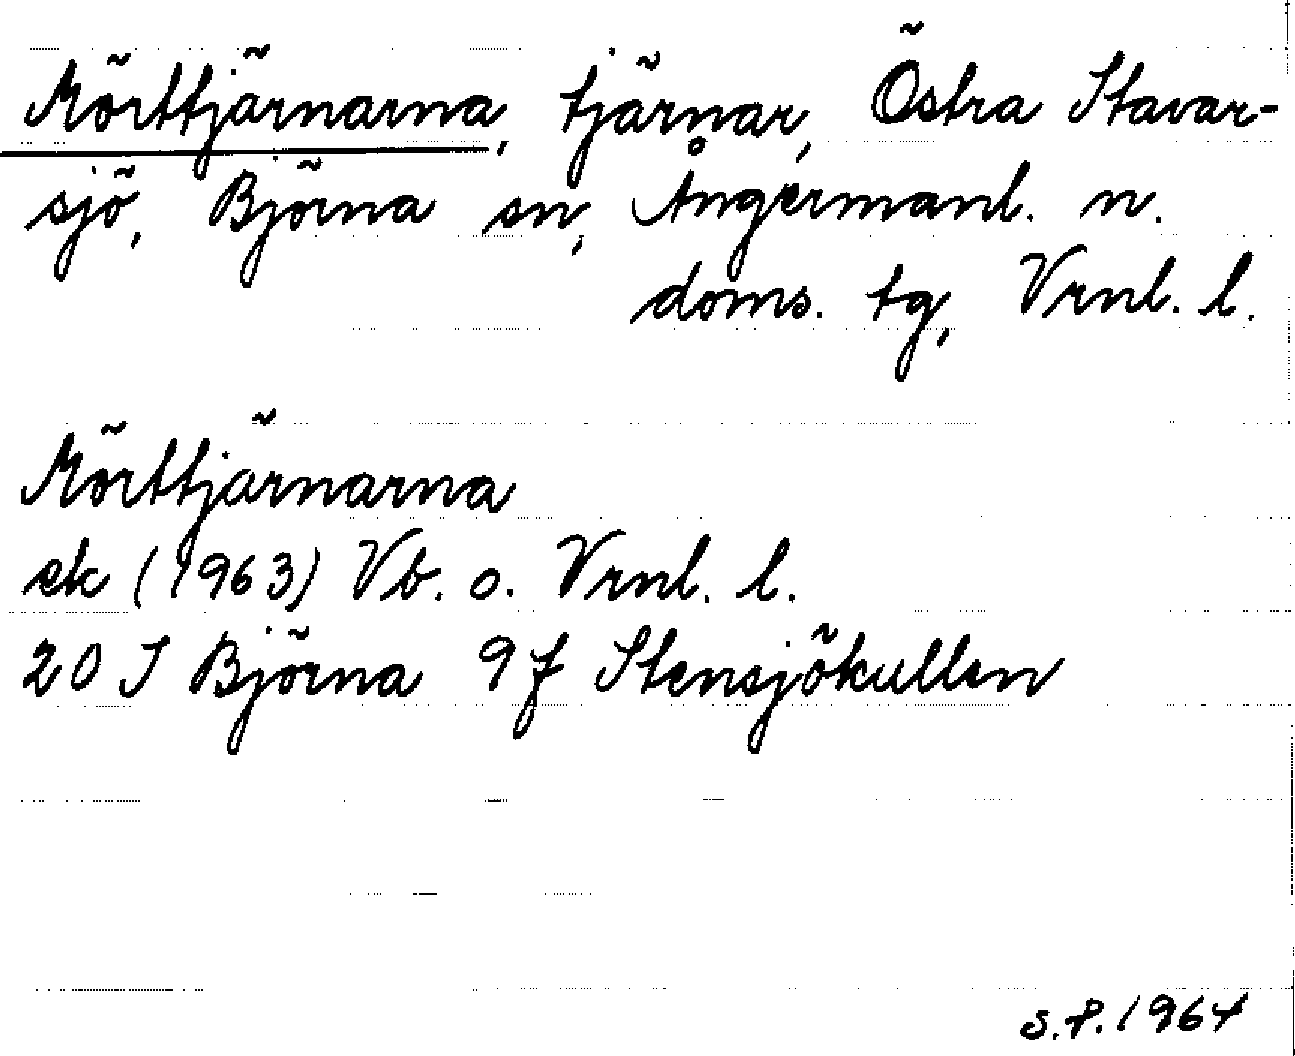 Mörttjärnarna, tjärnar, Östra Stavar-
sjö, Björna sn, Ångermanl. n.
doms. tg, Vrnl. l.
Mörttjärnarna
ek (1963) Vb. o. Vrnl. l.
20 I Björna 9f Stensjökullen
S.P. 1964